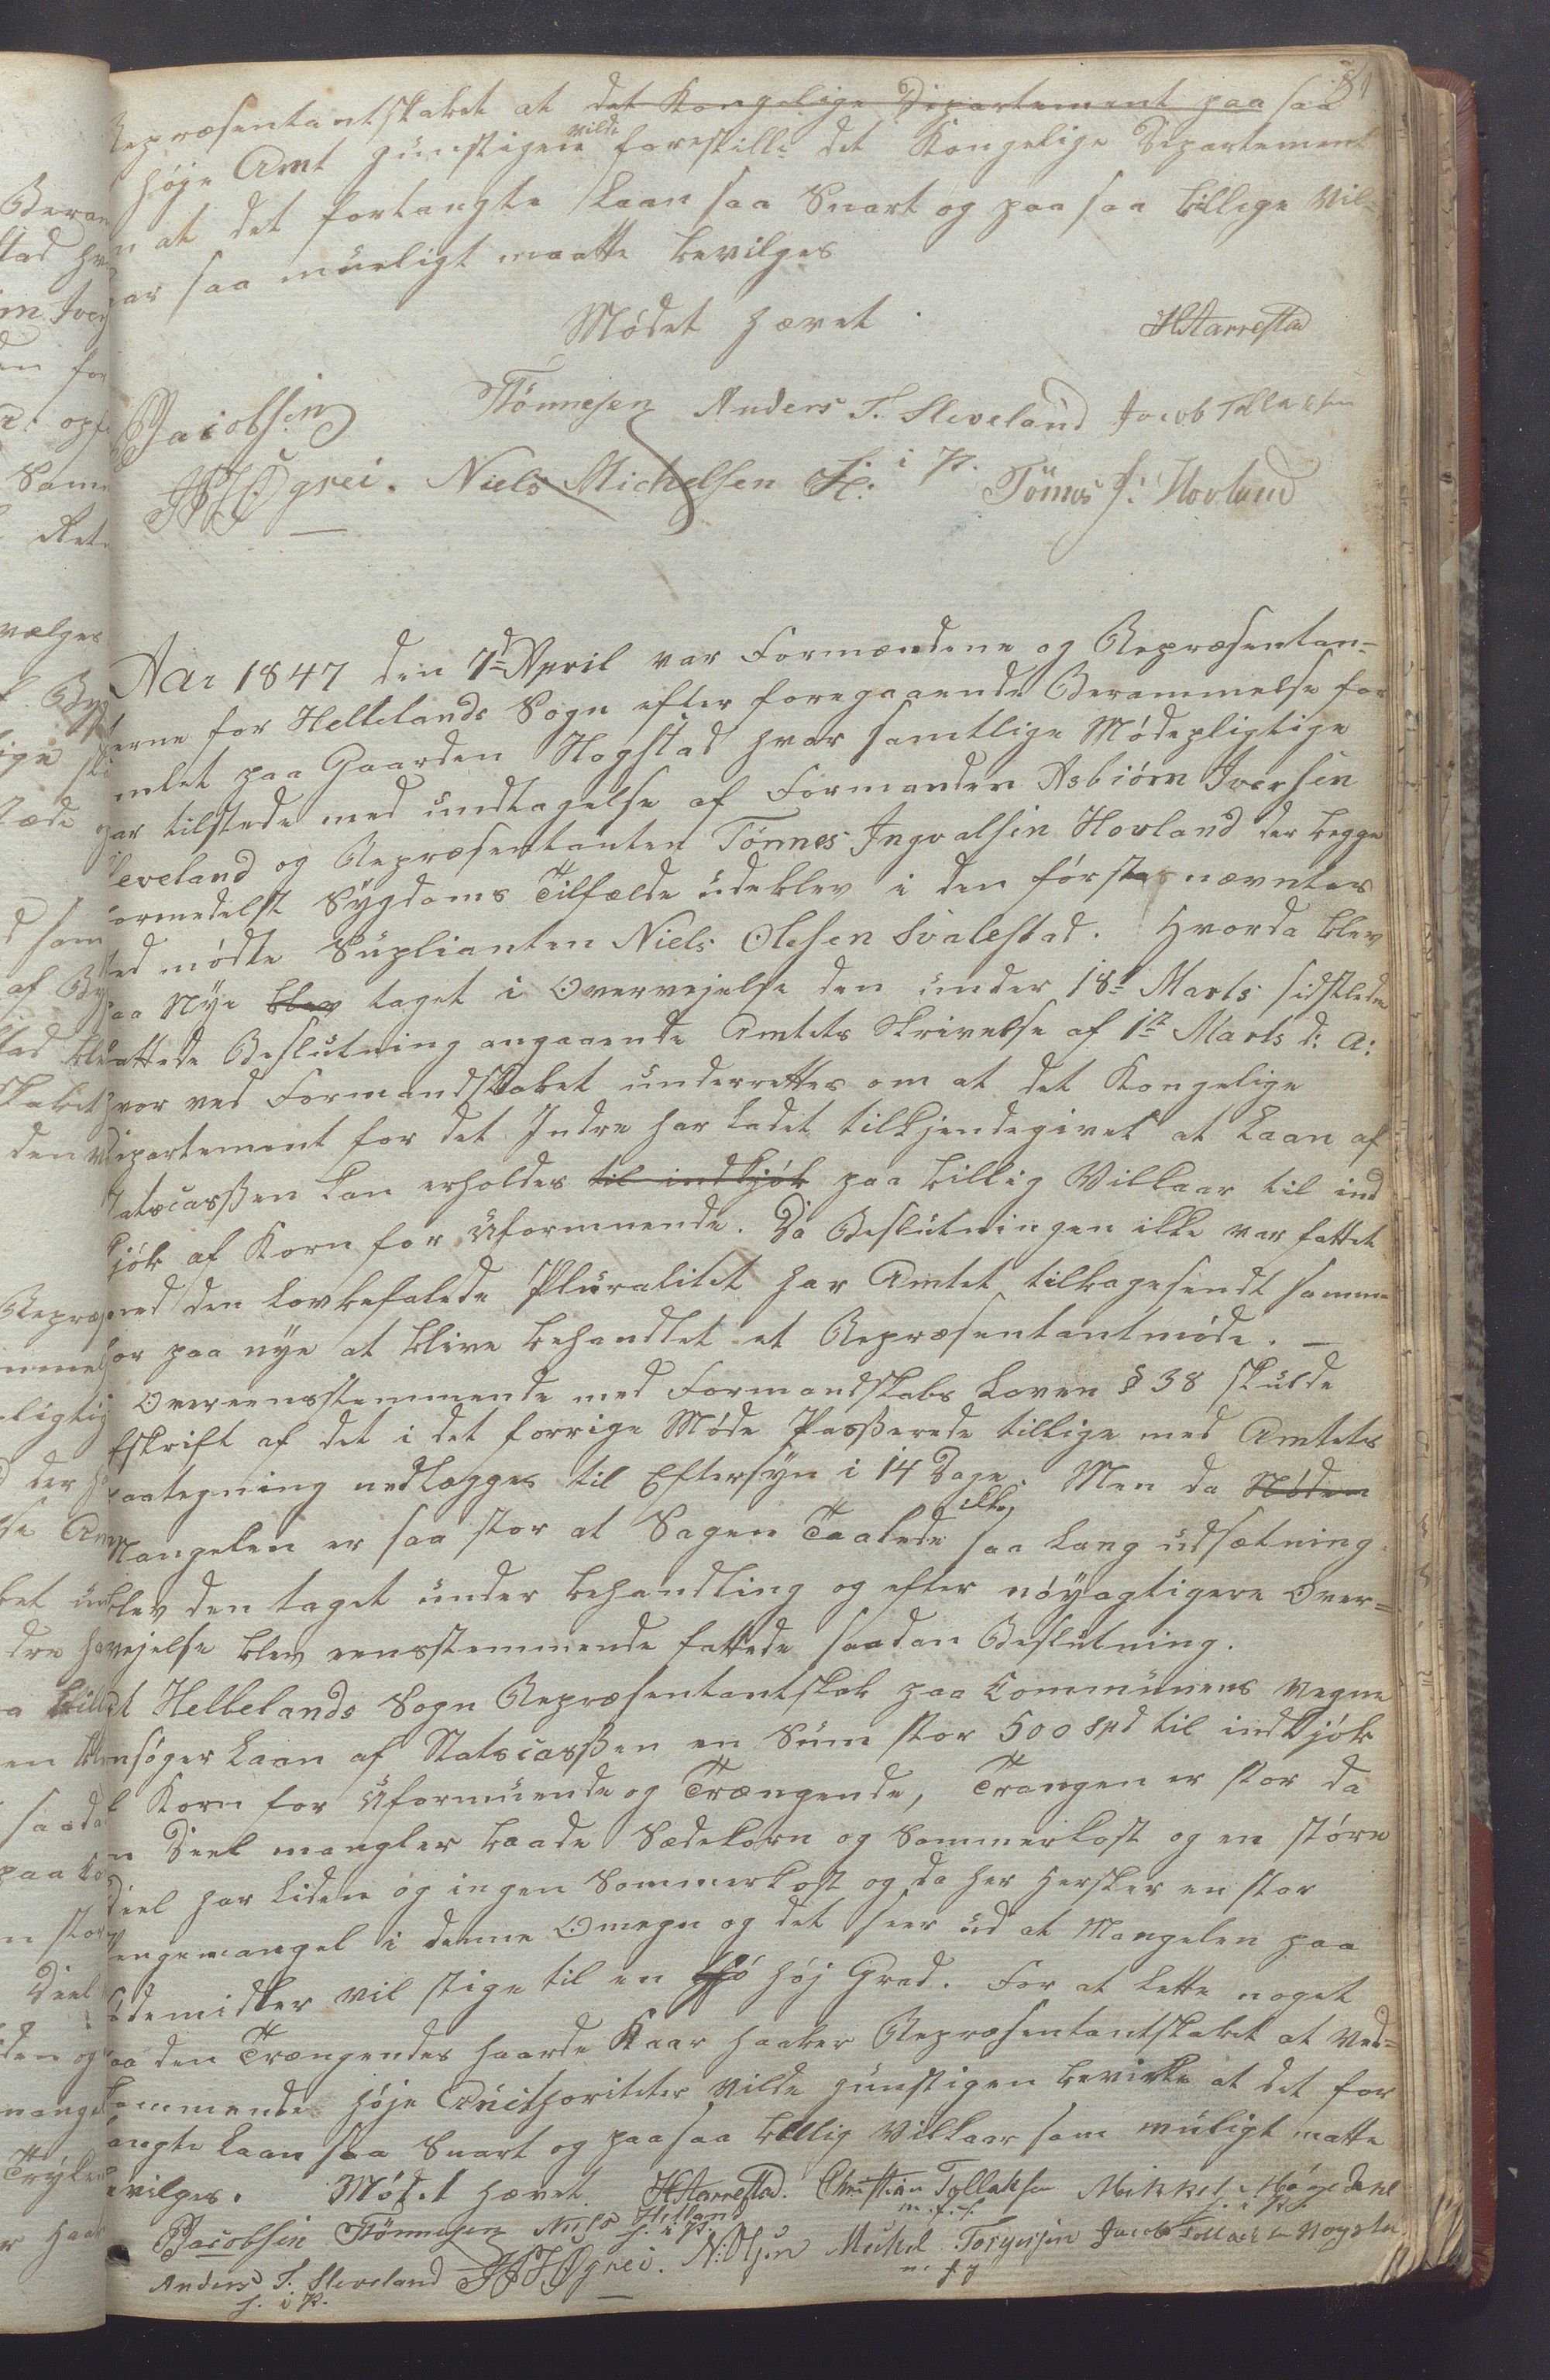 81
Repræsentantskabet at det Kongelige Departement paa saa
høje Amt gunstigen vilde forestille det Kongelige Departement
n at det forlangte Laan saa Snart og paa saa billige Vil-
aar saa mueligt maatte bevilges
Mødet hævet.
HAarrestad
BJacobsen Tönnesen Anders T. Sleveland Jacob Tollaksen
Øgrei. Niels Michelsen H: i P. Tönnes J: Hovland
Aar 1847 den 7d April var Formændene og Repræsentan-
terne for Hellelands Sogn efter foregaaende Berammelse for
mlet paa Gaarden Hogstad hvor samtlige Mødepligtige
var tilstede med undtagelse af Formanden Asbiörn Iversen
leveland og Repræsentanten Tönnes Ingvalsen Hovland der begge
formedelst Sygdoms Tilfælde udeblev i den førstes nævntes
ted mødte Suplianten Niels Olesen Svalestad. Hvorda blev
paa Nye blev taget i Overvejelse den under 18d Marts sidstleden
fattede Beslutning angaaende Amtets Skrivelse af 1ste Marts d: A:
hvor ved Formandskabet underrettes om at det Kongelige
Departement for det Indre har ladet tilkjendegivet at Laan af
Statscassen kan erholdes til indkjøb paa billig Villaar til ind
kjøb af Korn for Uformuende. Da Beslutningen ikke var fattet
med den Lovbefalede Pluralitet har Amtet tilbagesendt samme
for paa nye at blive behandlet et Repræsentantmøde. –
Overeensstemmende med Formandskabs Loven § 38 skulde
Afskrift af det i det forrige Møde Passerede tillige med Amtets
paategning nedlægges til Eftersyn i 14 Dage. Men da Nøden
Mangelen er saa stor at Sagen Taalede ikke saa Lang udsætning.
blev den taget under behandling og efter nøyagtigere Over=
vejelse blev eensstemmende fattede saadan Beslutning.
At Hellelands Sogn Repræsentantskab paa Communens vegne
ansøger Laan af Statscassen en Sum stor 500 Spd til indkjøb
af Korn for Uformuende og Trængende, Trangen er stor da
en Deel mangler baade Sædekorn og Sommerkost og en større
Deel har Liden og ingen Sommerkost og da her hersker en stor
Pengemangel i denne Omegn og det seer ud at Mangelen paa
Fødemidler vil stige til en høj Grad. For at lette noget
paa den Trængendes haarde Kaar haaber Repræsentantskabet at Ved=
kommende høje Authoriteter vilde gunstigen bevirke at det for
langte Laan saa Snart og paa saa billig Villaar som muligt matte
bevilges. Mødet hævet HAarrestad. Christian Tollaksen Mikkel Høgedahl
m. f. P. f. i P.
BJacobsen Tönnesen Niels Helland Øgrei. N: Olsen Mickel Torgersen Jacob Tollaksen
f. i P.
Anders T. Sleveland
f. i P.